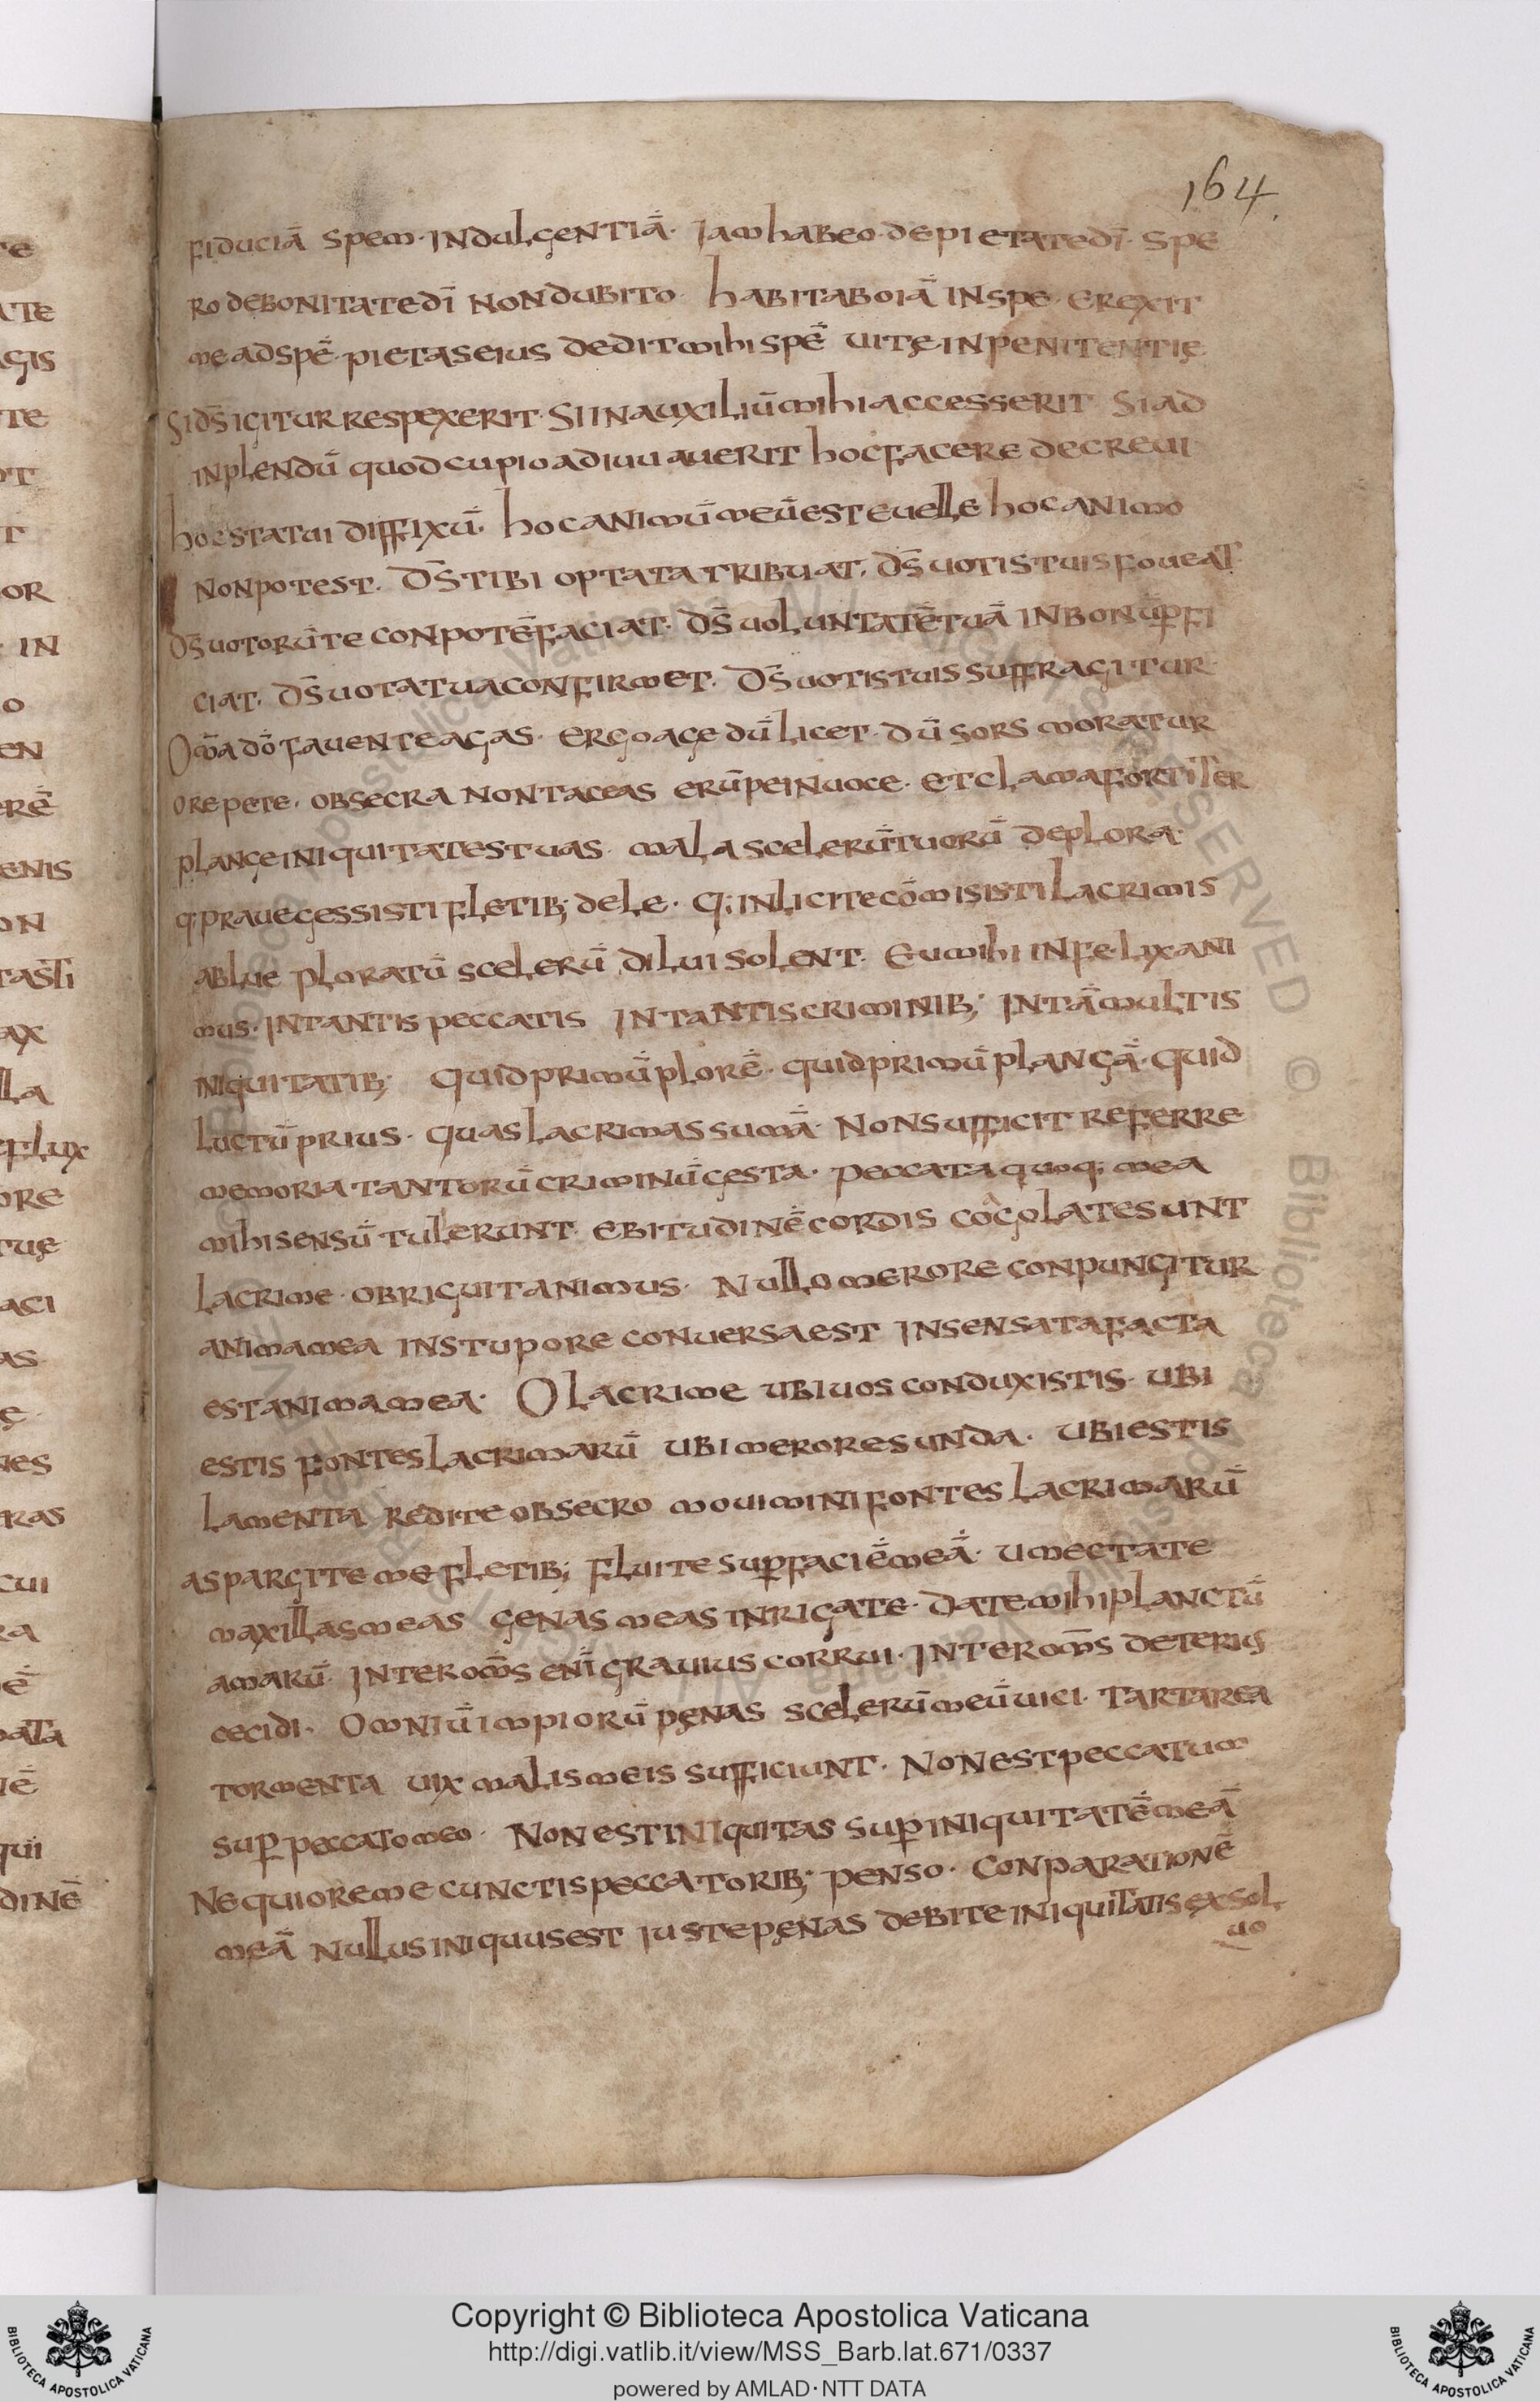 164.
fiduciā spem· indulgentiā· Iam habeo· de pietate dī· Spe
ro de bonitate dī non dubito· habitabo iā in spe· erexit
me ad spē· pietas eius dedit mihi spē uitę in penitentię
Si ds̄ igitur respexerit· Si in auxiliū mihi accesserit Si ad
inplendū quod cupio adiuuauerit hoc facere decreui
hoc statui diffixū· hoc animū meū est euelle hoc animo
non potest. Ds̄ tibi optata tribuat. ds̄ uotis tuis foueat
ds̄ uotorū te conpotē faciat· ds̄ uoluntatē tuā in bonū ꝑfi
ciat. ds̄ uota tua confirmet. Ds̄ uotis tuis suffragitur
Om̄a dō fauente agas· ergo age dū licet· dū sors moratur
ore pete. obsecra non taceas erūpe in uoce· et clama fortiter
plange iniquitates tuas· mala scelerū tuorū deplora·
q; praue gessisti fletib; dele· q; inlicite cōmisisti lacrimis
ablue ploratū scelerū dilui solent. Eu mihi infelix ani
mus· in tantis peccatis in tantis criminib; in tā multis
iniquitatib; quid primū plorē· quid primū plangā· quid
luctū prius· quas lacrimas sumā· non sufficit referre
memoria tantorū criminū gesta· peccata quoq; mea
mihi sensū tulerunt ebitudinē cordis cōgolate sunt
lacrime· obriguit animus· Nullo merore conpungitur
anima mea in stupore conuersa est insensata facta
est anima mea· O lacrime ubi uos conduxistis· ubi
estis fontes lacrimarū ubi merores unda· ubi estis
lamenta redite obsecro mouimini fontes lacrimarū
aspargite me fletib; fluite suꝑ faciē meā· umectate
maxillas meas genas meas inrigate· date mihi planctū
amarū· inter om̄s enī grauius corrui· inter om̄s deterius
cecidi· omniū impiorū pęnas scelerū meū uici· tartarea
tormenta uix malis meis sufficiunt· non est peccatum
suꝑ peccato meo· non est iniquitas suꝑ iniquitatē meā
nequiore me cunctis peccatorib; penso· conparationē
meā nullus iniquus est iuste pęnas debite iniquitatis exsol
uo
Copyright © Biblioteca Apostolica Vaticana
http://digi.vatlib.it/view/MSS_Barb.lat.671/0337
powered by AMLAD·NTT DATA